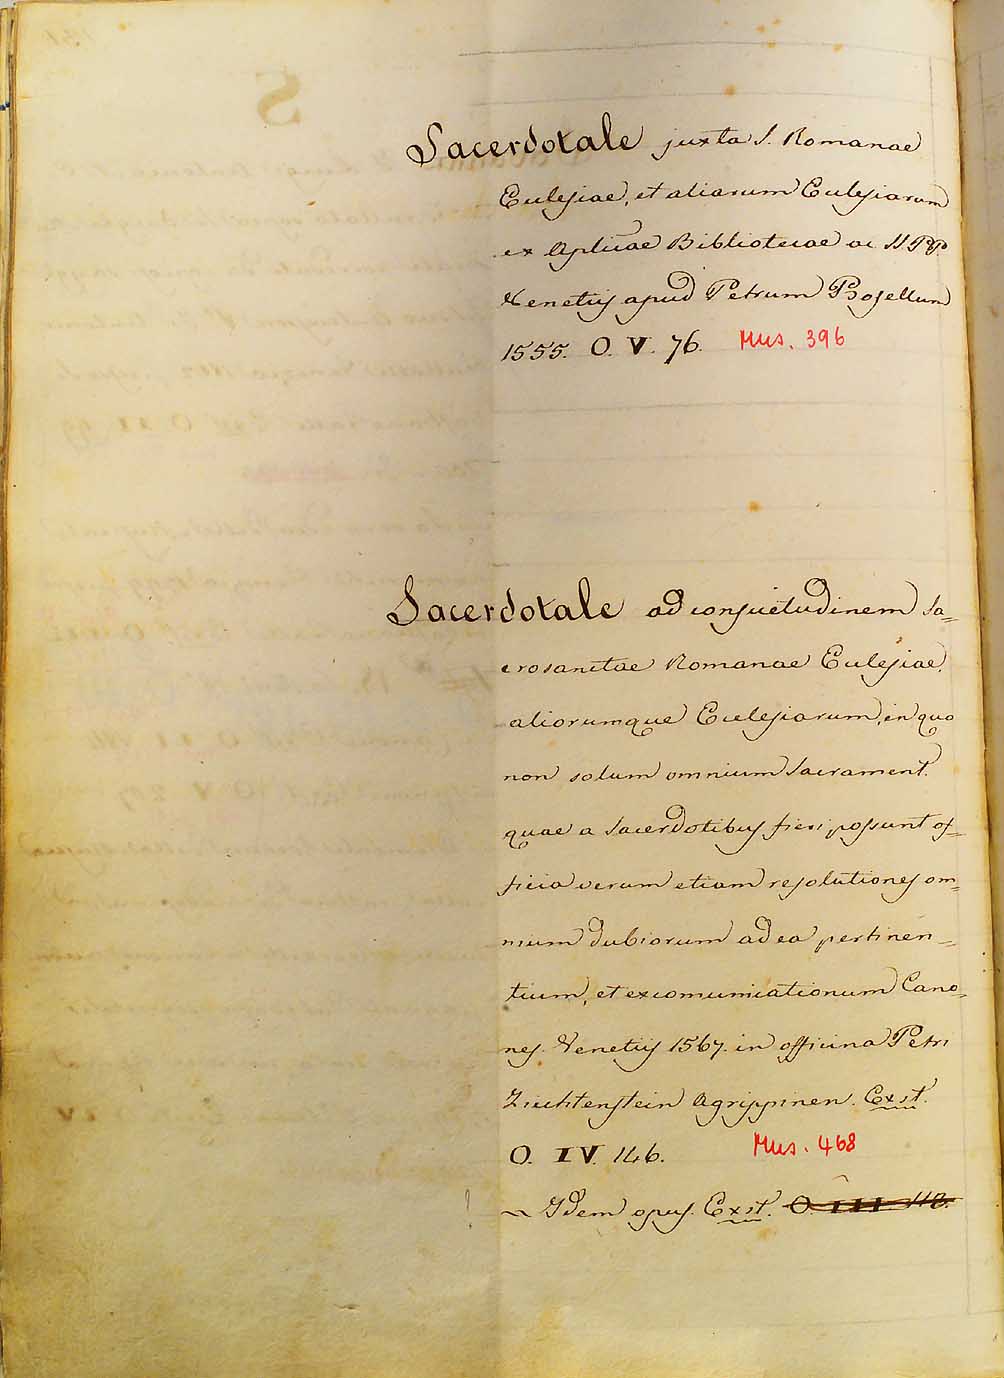 Sacerdotale juxta S. Romanae
Eclesiae, et aliarum Eclesiarum
ex Aplicae Bibliotecae ac SS PP.
Venetiis apud Petrum Bosellum
1555. O. V. 76. Mus. 396
Sacerdotale ad consuetudinem Sa=
crosanctae Romanae Eclesiae
aliorumque Eclesiarum, in quo
non solum omnium Sacrament.
quae a Sacerdotibus fieri possunt of=
ficia verum etiam resolutiones om=
nium dubiorum ad ea pertinen=
tium, et excomunicationum Cano=
nes. Venetiis 1567. in officina Petri
Liechtenstein Agrippinen. Exst.
O. IV. 146. Mus. 468
~ Idem opus. Exst. O III 118.